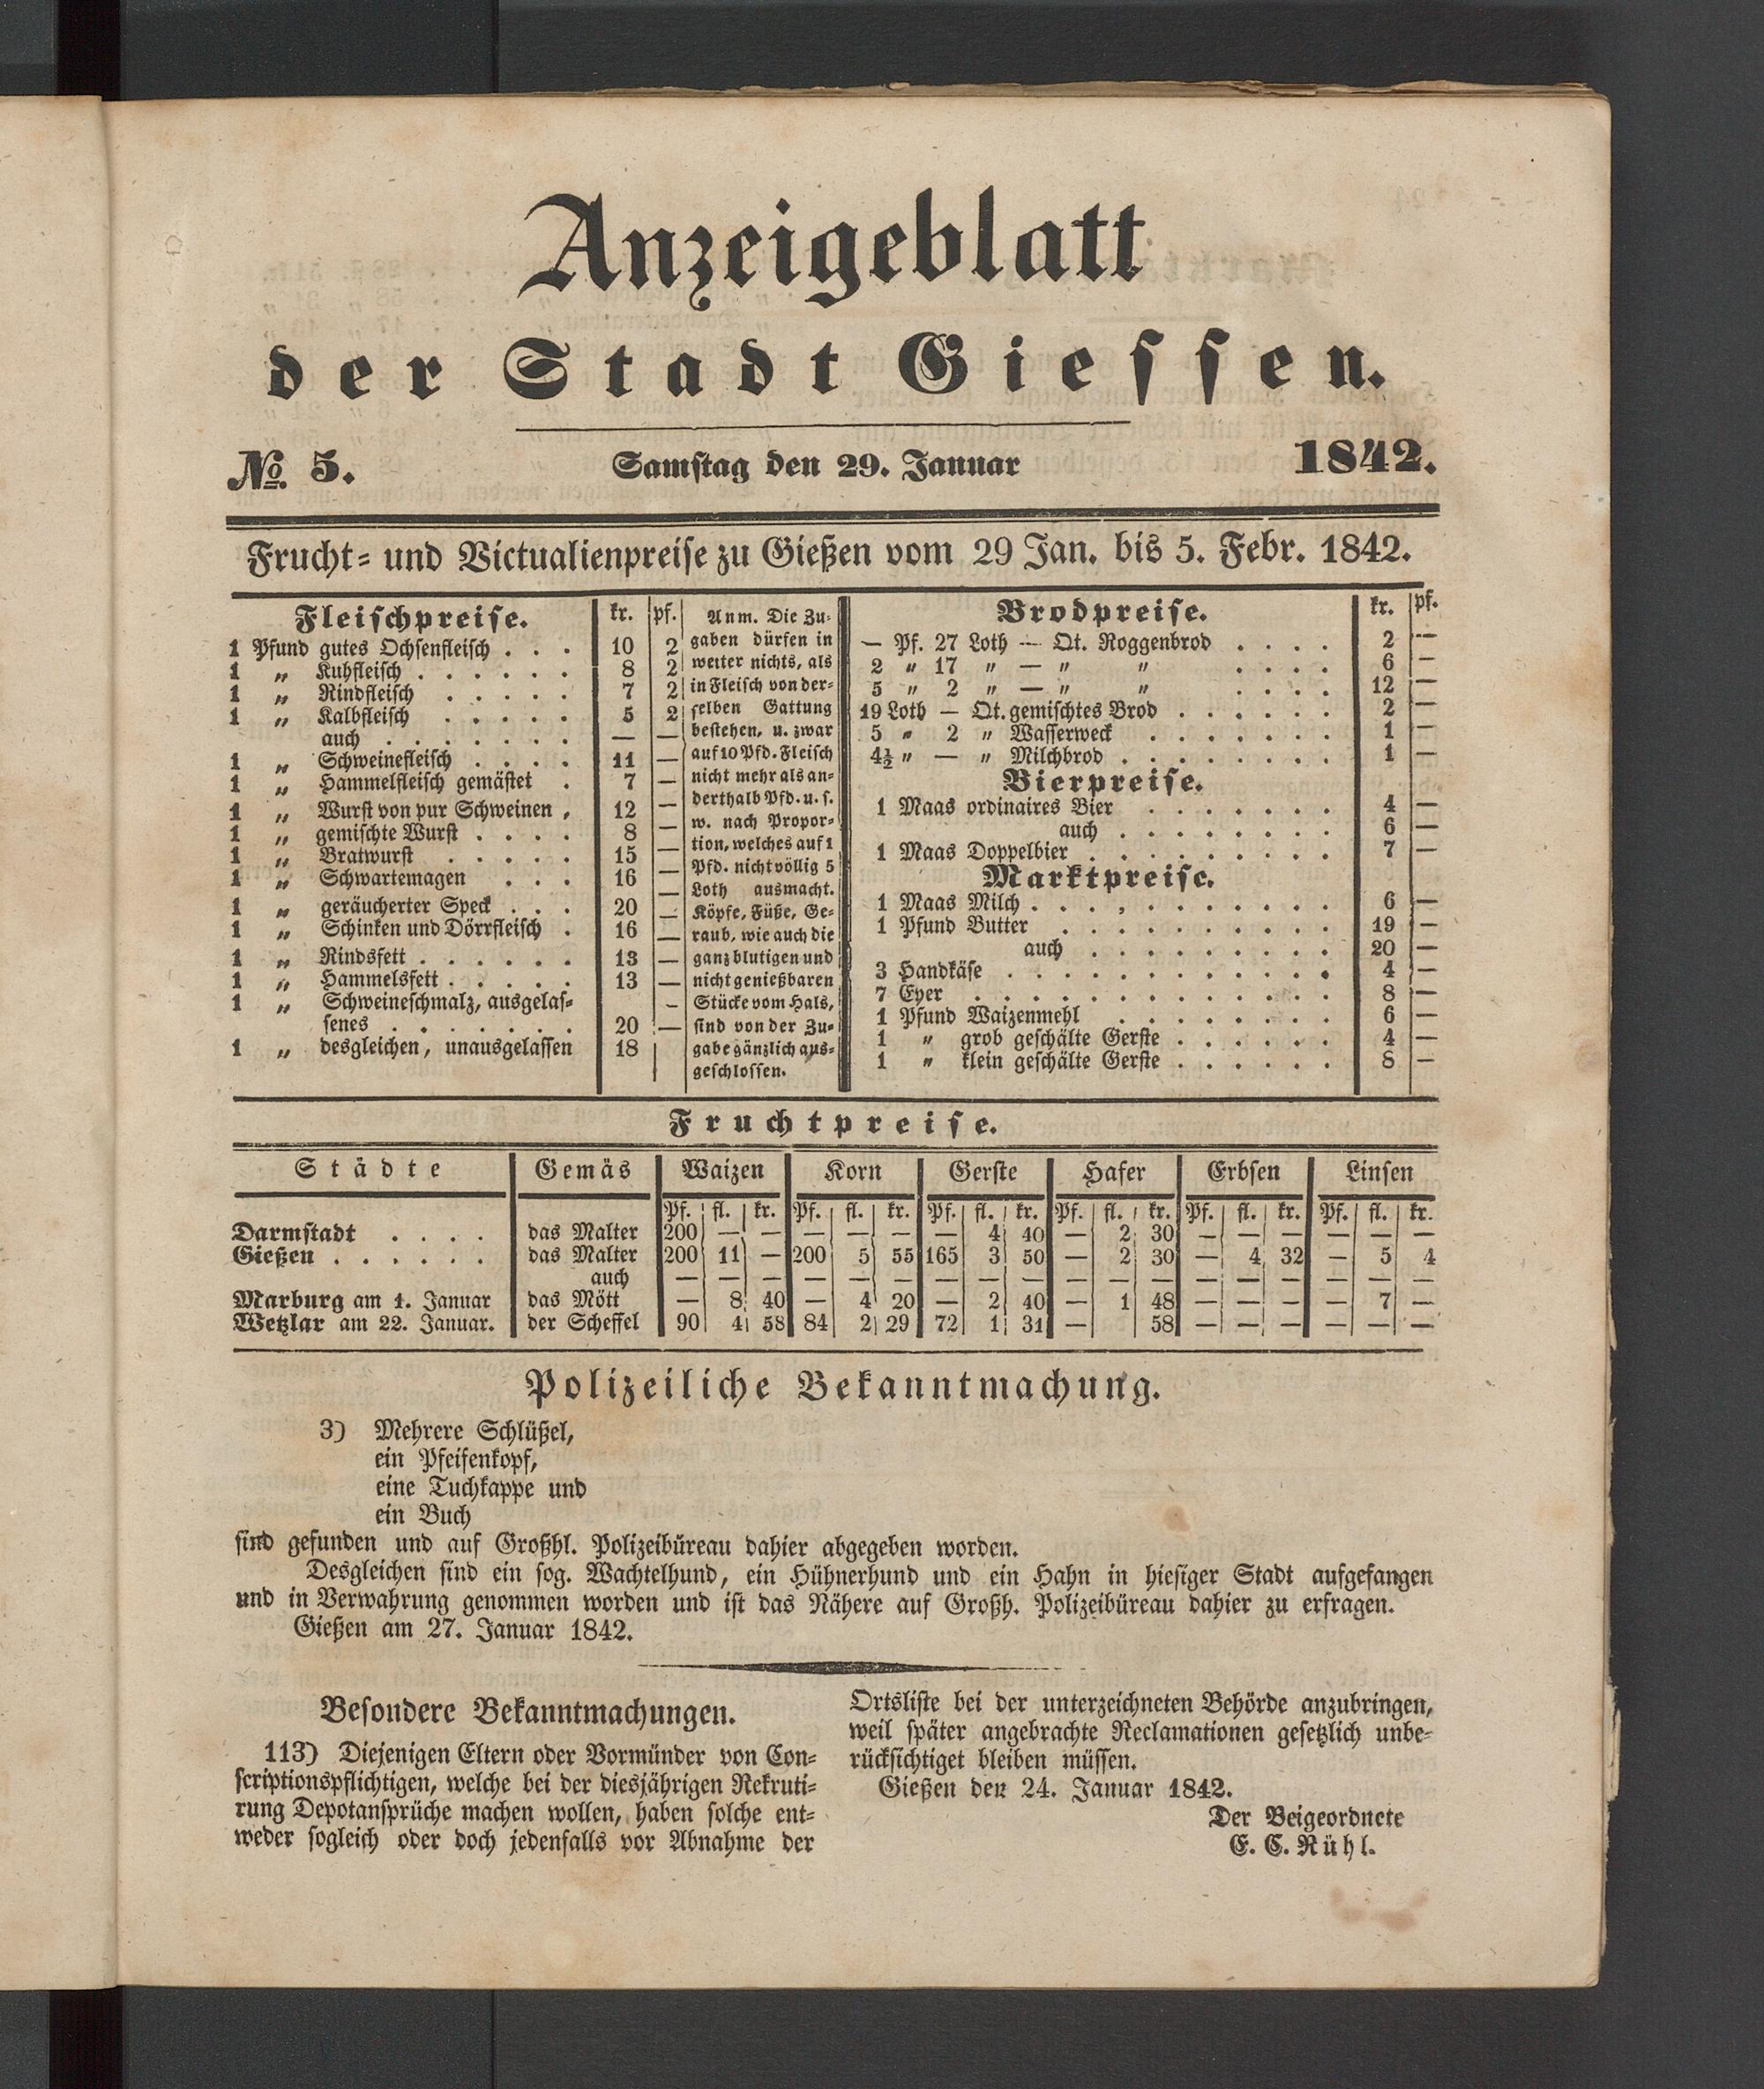 Anzeigeblatt
der Stadt Giessen.
No. 5. Samstag den 29. Januar 1842.
Frucht= und Victualienpreise zu Gießen vom 29 Jan. bis 5. Febr. 1842.
Fleischpreise. kr. pf.
1 Pfund gutes Ochsenfleisch . . . 10 2
1 „ Kuhfleisch . . . . . . 8 2
1 „ Rindfleisch . . . . . 7 2
1 „ Kalbfleisch . . . . . 5 2
auch . . . . . . . — —
1 „ Schweinefleisch . . . . 11 —
1 „ Hammelfleisch gemästet . 7 —
1 „ Wurst von pur Schweinen , 12 —
1 „ gemischte Wurst . . . . 8 —
1 „ Bratwurst . . . . . 15 —
1 „ Schwartemagen . . . 16 —
1 „ geräucherter Speck . . . 20 —
1 „ Schinken und Dörrfleisch . 16 —
1 „ Rindsfett . . . . . . 13 —
1 „ Hammelsfett . . . . . 13 —
1 „ Schweineschmalz, ausgelas= –
senes . . . . . . . 20 —
1 „ desgleichen, unausgelassen 18
Anm. Die Zu=
gaben dürfen in
weiter nichts, als
in Fleisch von der=
selben Gattung
bestehen, u. zwar
auf 10 Pfd. Fleisch
nicht mehr als an=
derthalb Pfd. u. s.
w. nach Propor=
tion, welches auf 1
Pfd. nicht völlig 5
Loth ausmacht.
Köpfe, Füße, Ge=
raub, wie auch die
ganz blutigen und
nicht genießbaren
Stücke vom Hals,
sind von der Zu=
gabe gänzlich aus=
geschlossen.
Brodpreise. kr. pf.
— Pf. 27 Loth — Qt. Roggenbrod . . . . 2 —
2 „ 17 „ — „ „ . . . . 6 —
5 „ 2 „ — „ „ . . . . 12 —
19 Loth — Qt. gemischtes Brod . . . . . . 2 —
5 „ 2 „ Wasserweck . . . . . . . 1 —
4½ „ — „ Milchbrod . . . . . . . . 1 —
Bierpreise.
1 Maas ordinaires Bier . . . . . . . 4 —
auch . . . . . . . . 6 —
1 Maas Doppelbier . . . . . . . . . 7 —
Marktpreise.
1 Maas Milch . . . , . . . . . . . 6 —
1 Pfund Butter . . . . . . . . . . 19 —
auch . . . . . . . . . 20 —
3 Handkäse . . . . . . . . . . . . 4 —
7 Eyer . . . . . . . . . . . . . 8 —
1 Pfund Waizenmehl . . . . . . . . 6 —
1 „ grob geschälte Gerste . . . . . . 4 —
1 „ klein geschälte Gerste . . . . . . 8 —
Fruchtpreise.
Städte Gemäs Waizen Korn Gerste Hafer Erbsen Linsen
Pf. fl. kr. Pf. fl. kr. Pf. fl. kr. Pf. fl. kr. Pf. fl. kr. Pf. fl. kr.
Darmstadt . . . . das Malter 200 — — — — — — 4 40 — 2 30 — — — — — —
Gießen . . . . . . das Malter 200 11 — 200 5 55 165 3 50 — 2 30 — 4 32 — 5 4
auch — — — — — — — — — — — — — — — — — —
Marburg am 1. Januar das Mött — 8 40 — 4 20 — 2 40 — 1 48 — — — — 7 —
Wetzlar am 22. Januar. der Scheffel 90 4 58 84 2 29 72 1 31 — 58 — — — — — —
Polizeiliche Bekanntmachung.
3) Mehrere Schlüßel,
ein Pfeifenkopf,
eine Tuchkappe und
ein Buch
sind gefunden und auf Großhl. Polizeibüreau dahier abgegeben worden.
Desgleichen sind ein sog. Wachtelhund, ein Hühnerhund und ein Hahn in hiesiger Stadt aufgefangen
und in Verwahrung genommen worden und ist das Nähere auf Großh. Polizeibüreau dahier zu erfragen.
Gießen am 27. Januar 1842.
Besondere Bekanntmachungen.
113) Diejenigen Eltern oder Vormünder von Con=
scriptionspflichtigen, welche bei der diesjährigen Rekruti=
rung Depotansprüche machen wollen, haben solche ent=
weder sogleich oder doch jedenfalls vor Abnahme der
Ortsliste bei der unterzeichneten Behörde anzubringen,
weil später angebrachte Reclamationen gesetzlich unbe=
rücksichtiget bleiben müssen.
Gießen den 24. Januar 1842.
Der Beigeordnete
E. C. Rühl.